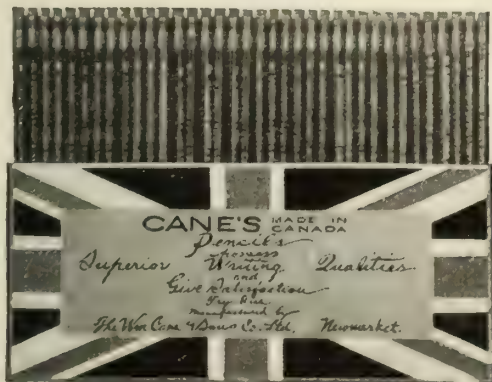 CANE'S MADE IN CANADA
Pencils
possess
Superior Writing Qualities
and
Give Satisfaction
Try One
manufactured by
The Wm Cane & Sons Co. Ltd. Newmarket.